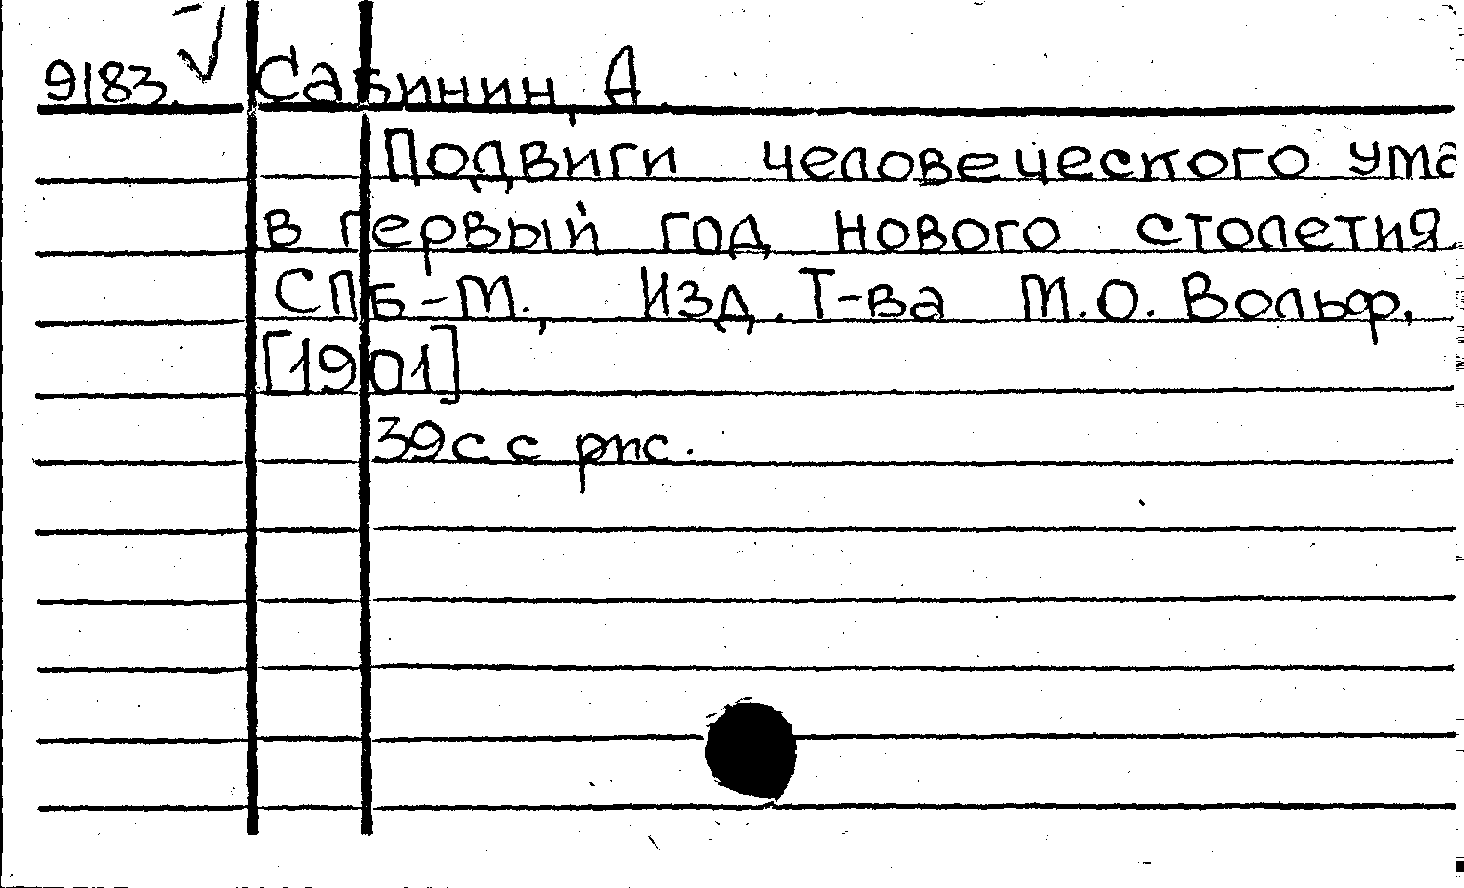 9183. Сабинин, А.
Подвиги человеческого ума
в первый год нового столетия.
СПб-М., Изд. Т-ва М.О. Вольф,
[1901]
39с с рис.